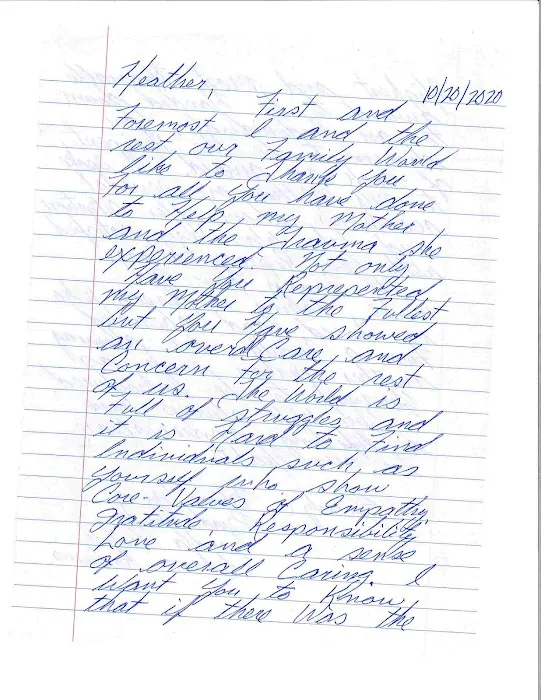 Heather, 10/20/2020
First and
Foremost I and the
rest our Family Would
like to Thank you
for all you have done
to Help my Mother
and the Trauma she
experienced. Not only
Have you Represented
my Mother to the Fullest
but you Have showed
an overal Care and
Concern for the rest
of us. The World is
Full of struggles and
it is Hard to Find
Individuals such as
yourself who show
Core-Values of Empathy,
gratitude, Responsibility,
Love and a sense
of overall Caring. I
Want you to Know
that if there Was the